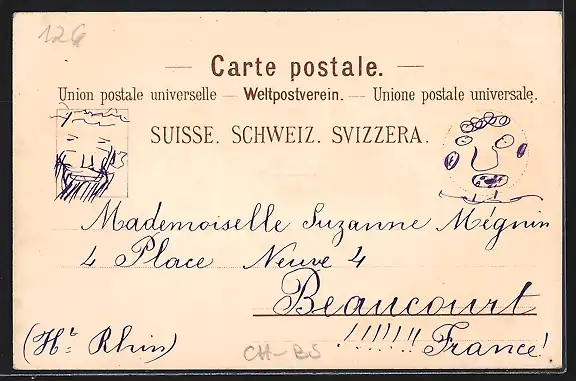 12G
— Carte postale. —
Union postale universelle — Weltpostverein. — Unione postale universale.
SUISSE. SCHWEIZ. SVIZZERA.
Mademoiselle Suzanne Mégnin
4 Place Neuve 4
Beaucourt
(Ht. Rhin) !!!!!!! France!
CH-BS